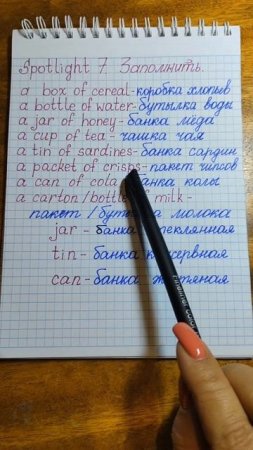 Spotlight 7 Запомнить.
a box of cereal-коробка хлопьев
a bottle of water-бутылка воды
a jar of honey-банка мёда
a cup of tea-чашка чая
a tin of sardines-банка сардин
a packet of crisps-пакет чипсов
a can of cola банка колы
a carton/bottle of milk-
пакет/бутылка молока
jar - банка стеклянная
tin- банка консервная
can- банка жестяная